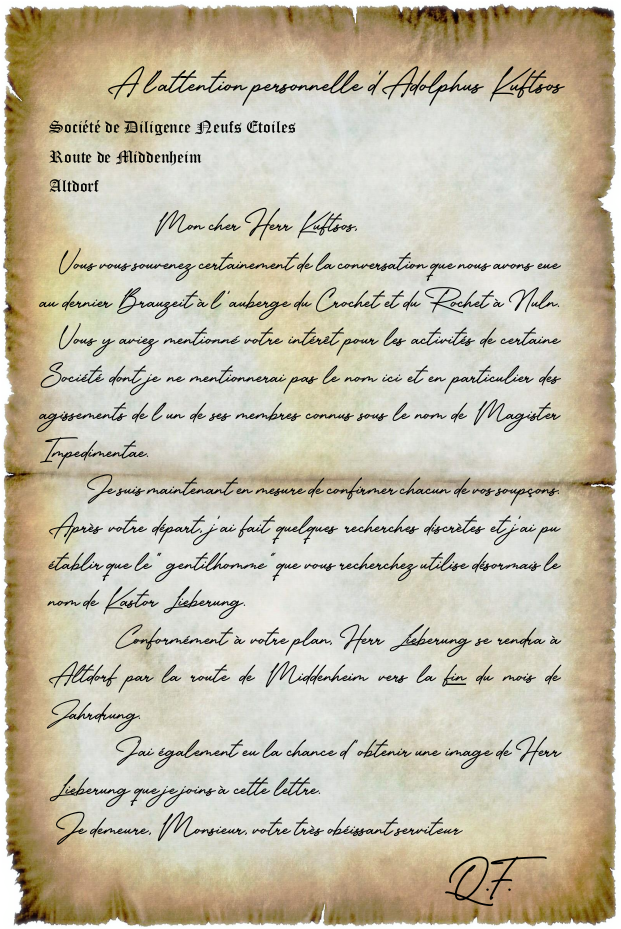 A l'attention personnelle d'Adolphus Kuftsos
Société de Diligence Neufs Etoiles
Route de Middenheim
Altdorf
Mon cher Herr Kuftsos,
Vous vous souvenez certainement de la conversation que nous avons eue
au dernier Brauzeit à l'auberge du Crochet et du Rochet à Nuln.
Vous y aviez mentionné votre intérêt pour les activités de certaine
Société dont je ne mentionnerai pas le nom ici et en particulier des
agissements de l'un de ses membres connus sous le nom de Magister
Impedimentae.
Je suis maintenant en mesure de confirmer chacun de vos soupçons.
Après votre départ, j'ai fait quelques recherches discrètes et j'ai pu
établir que le "gentilhomme" que vous recherchez utilise désormais le
nom de Kastor Lieberung.
Conformément à votre plan, Herr Lieberung se rendra à
Altdorf par la route de Middenheim vers la fin du mois de
Jahrdrung.
J'ai également eu la chance d'obtenir une image de Herr
Lieberung que je joins à cette lettre.
Je demeure, Monsieur, votre très obéissant serviteur
Q.F.